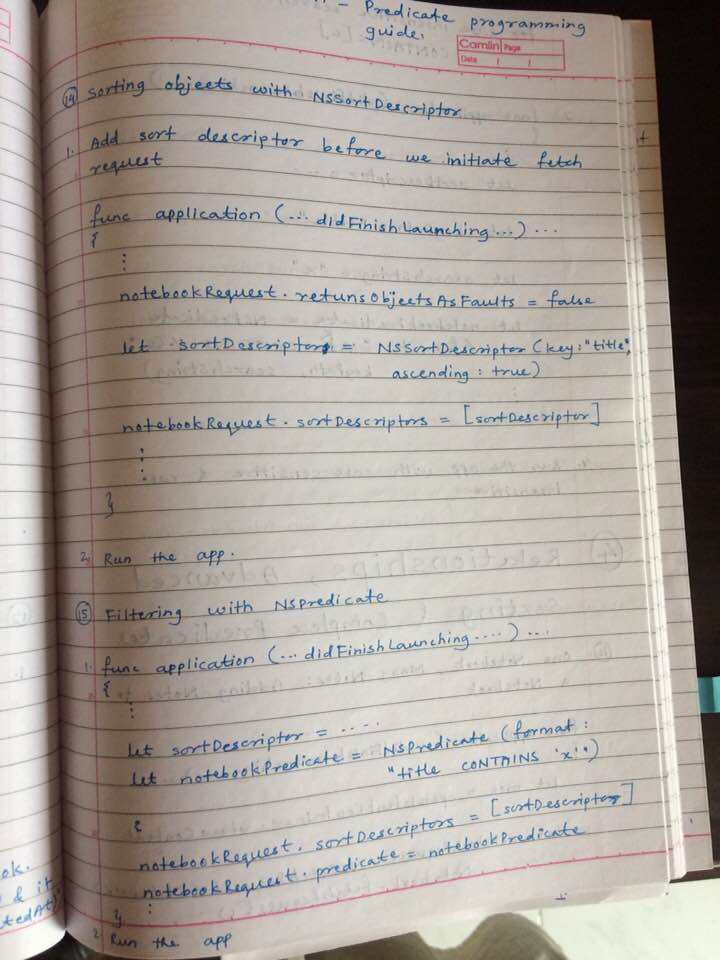 - Predicate programming
guide.
Camlin Page
Date / /
14 Sorting objects with NSSortDescriptor
1. Add sort descriptor before we initiate fetch
request
func application (... didFinishLaunching ...) ...
{
⋮
notebookRequest. retunsObjectsAsFaults = false
let sortDescriptor = NSSortDescriptor (key: "title",
ascending: true)
notebookRequest. sortDescriptors = [sortDescriptor]
⋮
}
2. Run the app.
15 Filtering with NSPredicate
1. func application (... didFinishLaunching ....) ...
{
⋮
let sortDescriptor = ....
let notebookPredicate = NSPredicate (format:
"title CONTAINS 'x'")
{
notebookRequest. sortDescriptors = [sortDescriptor]
notebookRequest. predicate = notebookPredicate
⋮
}
2. Run the app
ok.
& it
tedAt)